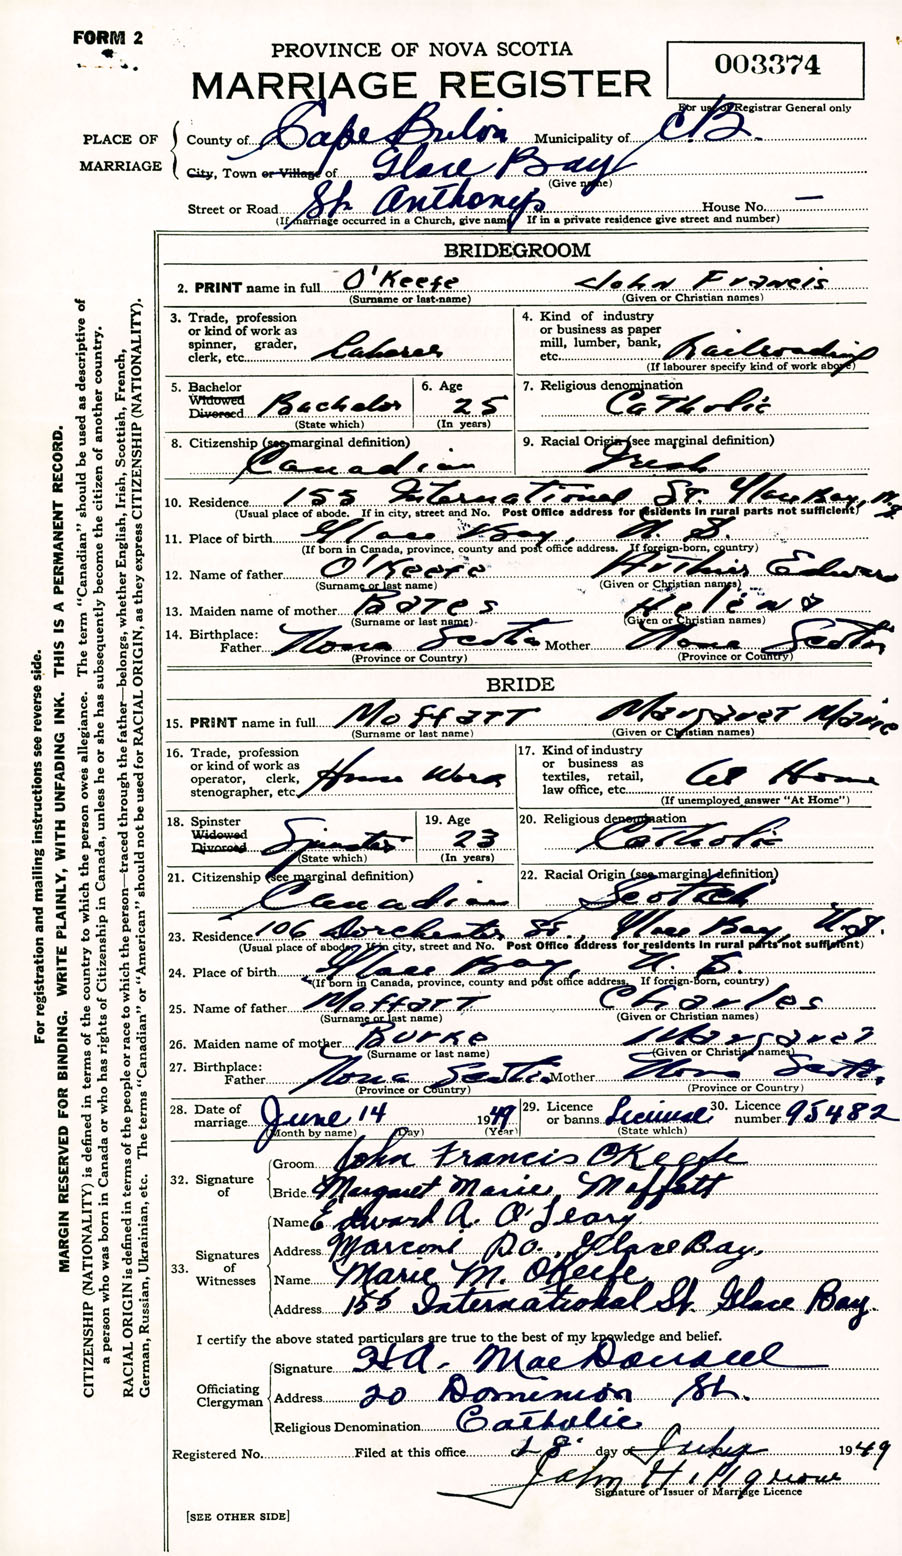 FORM 2
PROVINCE OF NOVA SCOTIA
MARRIAGE REGISTER
003374
For use of Registrar General only
PLACE OF MARRIAGE
County of Cape Breton Municipality of C.B.
City, Town or Village of Glace Bay
(Give name)
Street or Road St. Anthony's House No. —
(If marriage occurred in a Church, give name If in a private residence give street and number)
BRIDEGROOM
2. PRINT name in full O'Keefe John Francis
(Surname or last name) (Given or Christian names)
3. Trade, profession or kind of work as spinner, grader, clerk, etc. Laborer
4. Kind of industry or business as paper mill, lumber, bank, etc. Railroading
(If labourer specify kind of work above)
5. Bachelor Widowed Divorced Bachelor
(State which)
6. Age 25
(In years)
7. Religious denomination Catholic
8. Citizenship (see marginal definition) Canadian
9. Racial Origin (see marginal definition) Irish
10. Residence 155 International St. Glace Bay, N.S.
(Usual place of abode. If in city, street and No. Post Office address for residents in rural parts not sufficient)
11. Place of birth Glace Bay, N. S.
(If born in Canada, province, county and post office address. If foreign-born, country)
12. Name of father O'Keefe Arthur Edward
(Surname or last name) (Given or Christian names)
13. Maiden name of mother Bates Helena
(Surname or last name) (Given or Christian names)
14. Birthplace: Father Nova Scotia Mother Nova Scotia
(Province or Country) (Province or Country)
BRIDE
15. PRINT name in full Moffatt Margaret Marie
(Surname or last name) (Given or Christian names)
16. Trade, profession or kind of work as operator, clerk, stenographer, etc. House Work
17. Kind of industry or business as textiles, retail, law office, etc. At Home
(If unemployed answer "At Home")
18. Spinster Widowed Divorced Spinster
(State which)
19. Age 23
(In years)
20. Religious denomination Catholic
21. Citizenship (see marginal definition) Canadian
22. Racial Origin (see marginal definition) Scotch
23. Residence 106 Dorchester St., Glace Bay, N.S.
(Usual place of abode. If in city, street and No. Post Office address for residents in rural parts not sufficient)
24. Place of birth Glace Bay, N. S.
(If born in Canada, province, county and post office address. If foreign-born, country)
25. Name of father Moffatt Charles
(Surname or last name) (Given or Christian names)
26. Maiden name of mother Burke Margaret
(Surname or last name) (Given or Christian names)
27. Birthplace: Father Nova Scotia Mother Nova Scotia
(Province or Country) (Province or Country)
28. Date of marriage June 14 1949
(Month by name) (Day) (Year)
29. Licence or banns License
(State which)
30. Licence number 95482
32. Signature of
Groom John Francis O'Keefe
Bride Margaret Marie Moffatt
33. Signatures of Witnesses
Name Edward A. O'Leary
Address Marconi P.O., Glace Bay.
Name Marie M. O'Keefe
Address 155 International St. Glace Bay.
I certify the above stated particulars are true to the best of my knowledge and belief.
Officiating Clergyman
Signature H A. MacDonald
Address 20 Dominion St.
Religious Denomination Catholic
Registered No. Filed at this office day of 1949
John H.
Signature of Issuer of Marriage Licence
[SEE OTHER SIDE]
For registration and mailing instructions see reverse side.
MARGIN RESERVED FOR BINDING. WRITE PLAINLY, WITH UNFADING INK. THIS IS A PERMANENT RECORD.
CITIZENSHIP (NATIONALITY) is defined in terms of the country to which the person owes allegiance. The term "Canadian" should be used as descriptive of
a person who was born in Canada or who has rights of Citizenship in Canada, unless he or she has subsequently become the citizen of another country.
RACIAL ORIGIN is defined in terms of the people or race to which the person—traced through the father—belongs, whether English, Irish, Scottish, French,
German, Russian, Ukrainian, etc. The terms "Canadian" or "American" should not be used for RACIAL ORIGIN, as they express CITIZENSHIP (NATIONALITY).